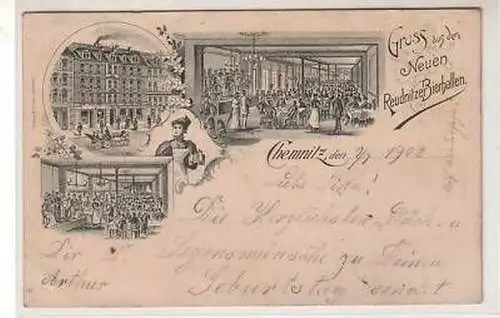 Gruss aus den
Neuen
Reudnitzer Bierhallen.
Chemnitz, den 7/9 1902
Liebe
Die Herzlichsten Glück- u
Segenswünsche zu Deinem
Geburtstag sendet
Dir
Arthur